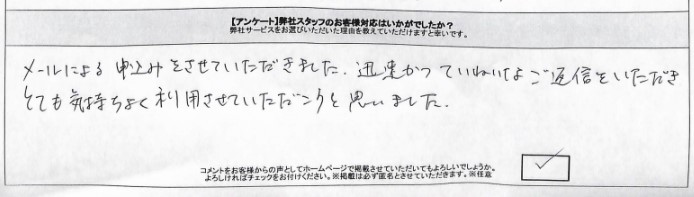 【アンケート】弊社スタッフのお客様対応はいかがでしたか？
弊社サービスをお選びいただいた理由を教えていただけますと幸いです。
メールによる申込みをさせていただきました。迅速かつていねいなご返信をいただき
とても気持ちよく利用させていただこうと思いました。
コメントをお客様からの声としてホームページで掲載させていただいてもよろしいでしょうか。
よろしければチェックをお付けください。※掲載は必ず匿名とさせていただきます。※任意